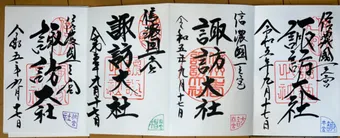 信濃國一之宮
諏訪大社
令和五年九月十七日
信濃國一之宮
諏訪大社
令和五年九月十七日
信濃國一之宮
諏訪大社
令和五年九月十七日
信濃國一之宮
諏訪大社
令和五年九月十七日